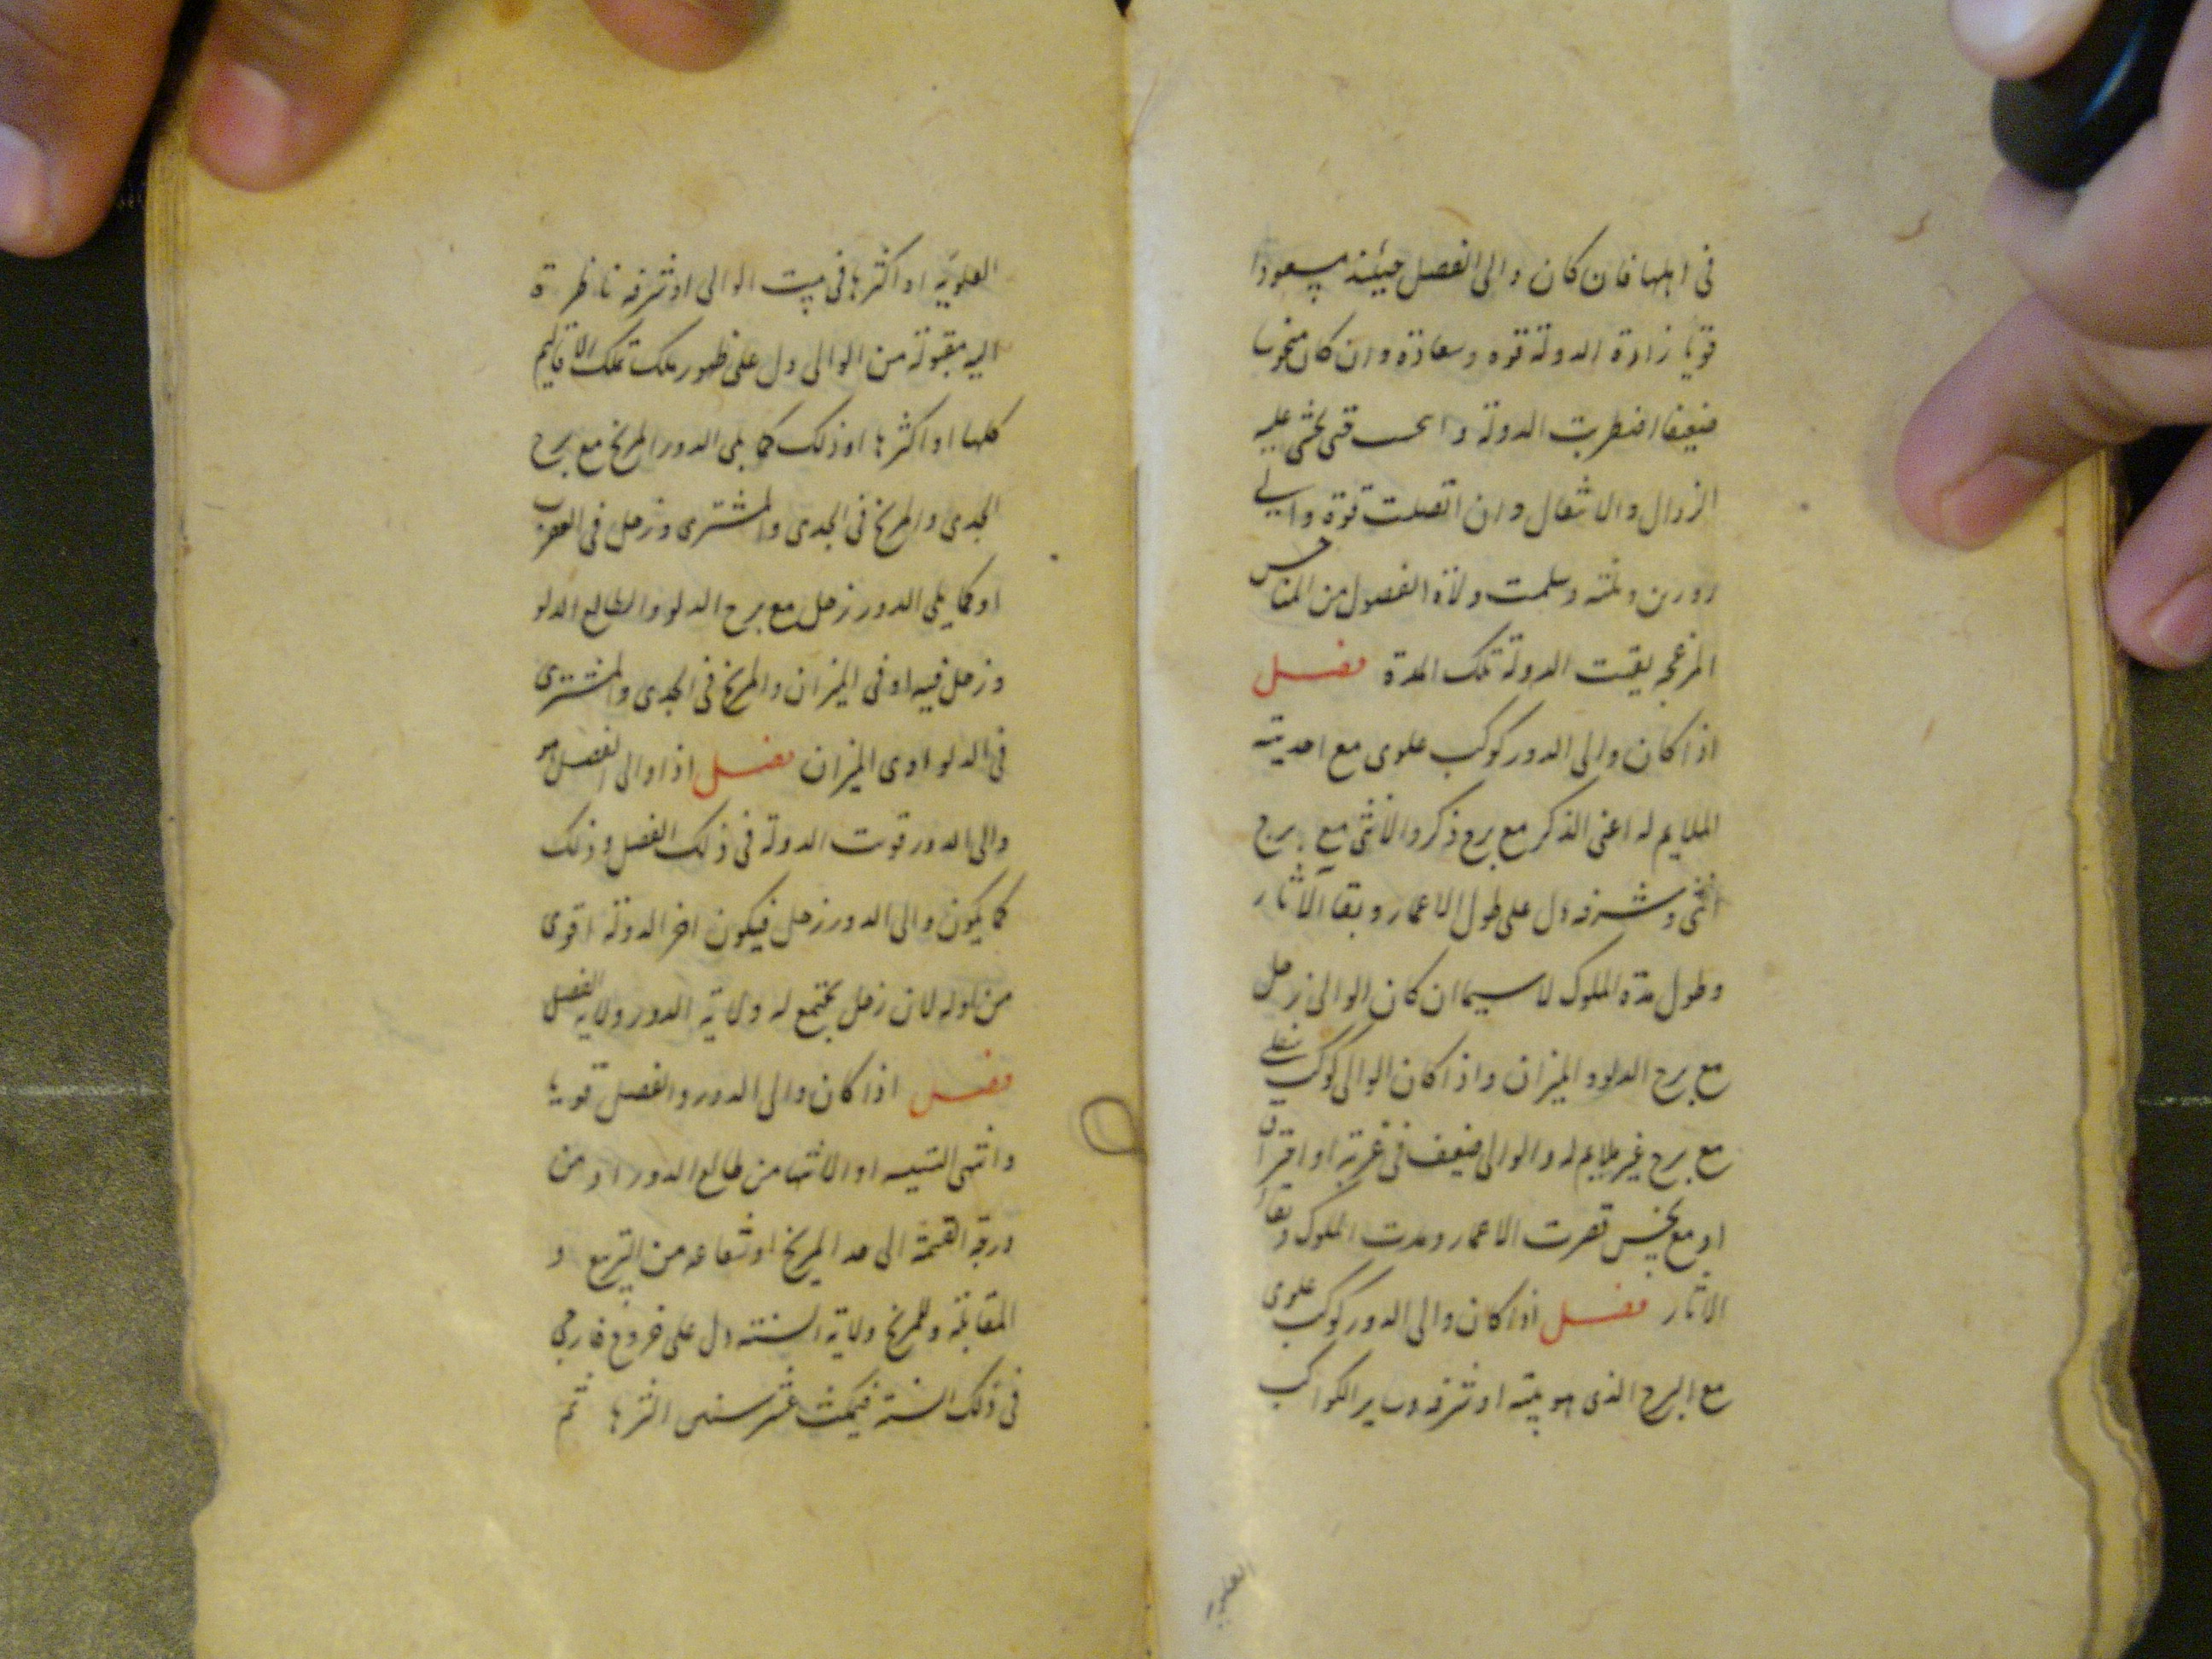 في ابلها فان كان والى الفصل حينئذ مسعودا
قويا زادة الدولة قوه وسعادة وان كان منحوسا
ضعيفا اضطربت الدولة و حتى يخشى عليه
الزوال والاشغال وان اتصلت قوة والى
دورين وثلثه وسلمت ولاة الفصول من المناحس
المزعجه بقيت الدولة تلك المدة فصل
اذا كان والى الدور كوكب علوى مع احد بيته
الملايم له اعنى الذكر مع برج ذكر والانثى مع برج
انثى وشرفه دل على طول الاعمار وبقا الاثار
وطول مدة الملوك لا سيما ان كان الوالى زحل
مع برج الدلو والميزان واذا كان الوالى كوكب سفلى
مع برج غير ملايم له والوالى ضعيف فى غربة او احتراق
او مع نحيس قصرت الاعمار ومدت الملوك وبقا
الاثار فصل اذا كان والى الدور كوكب علوى
مع البرج الذى هو بيته او شرفه وساير الكواكب
العلويه
العلويه او اكثرها فى بيت الوالى او شرفه ناظرة
اليه مقبولة من الوالى دل على ظهور ملك تملك الاقاليم
كلها او اكثرها او ذلك كما يلى الدور المريخ مع برج
الجدى والمريخ فى الجدى والمشترى وزحل فى العقرب
او كما يلى الدور زحل مع برج الدلو والطالع الدلو
وزحل فيه او فى الميزان والمريخ فى الجدى والمشترى
فى الدلو اوى الميزان فصل اذا والى الفصل هو
والى الدور قوت الدولة فى ذلك الفصل وذلك
كما يكون والى الدور زحل فيكون اخر الدولة اقوى
من اوله لان زحل يجتمع له ولاية الدور ولاية الفصل
فصل اذا كان والى الدور والفصل قويا
وانتهى التسيير او الانتها من طالع الدور او من
درجة القسمة الى حد المريخ او شعاعه من التربيع و
المقابلة وللمريخ ولاية السنته دل على خروج خارجى
فى ذلك السنة فيمكث عشر سنين اكثرها ثم